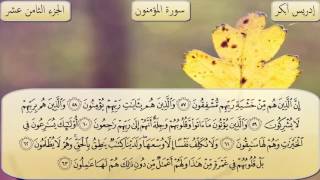 إدريس أبكر
سورة المؤمنون
الجزء الثامن عشر
إِنَّ ٱلَّذِينَ هُم مِّنْ خَشْيَةِ رَبِّهِم مُّشْفِقُونَ ٥٧ وَٱلَّذِينَ هُم بِـَٔايَٰتِ رَبِّهِمْ يُؤْمِنُونَ ٥٨ وَٱلَّذِينَ هُم بِرَبِّهِمْ
لَا يُشْرِكُونَ ٥٩ وَٱلَّذِينَ يُؤْتُونَ مَآ ءَاتَوا۟ وَّقُلُوبُهُمْ وَجِلَةٌ أَنَّهُمْ إِلَىٰ رَبِّهِمْ رَٰجِعُونَ ٦٠ أُو۟لَٰٓئِكَ يُسَٰرِعُونَ فِى
ٱلْخَيْرَٰتِ وَهُمْ لَهَا سَٰبِقُونَ ٦١ وَلَا نُكَلِّفُ نَفْسًا إِلَّا وُسْعَهَا وَلَدَيْنَا كِتَٰبٌ يَنطِقُ بِٱلْحَقِّ وَهُمْ لَا يُظْلَمُونَ ٦٢
بَلْ قُلُوبُهُمْ فِى غَمْرَةٍ مِّنْ هَٰذَا وَلَهُمْ أَعْمَٰلٌ مِّن دُونِ ذَٰلِكَ هُمْ لَهَا عَٰمِلُونَ ٦٣